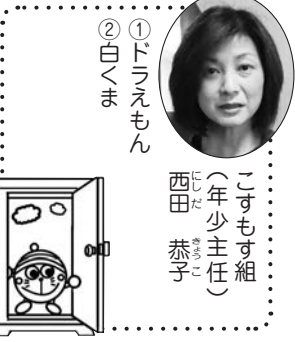 こすもす組
（年少主任）
西田　恭子
にしだ　きょうこ
①ドラえもん
②白くま